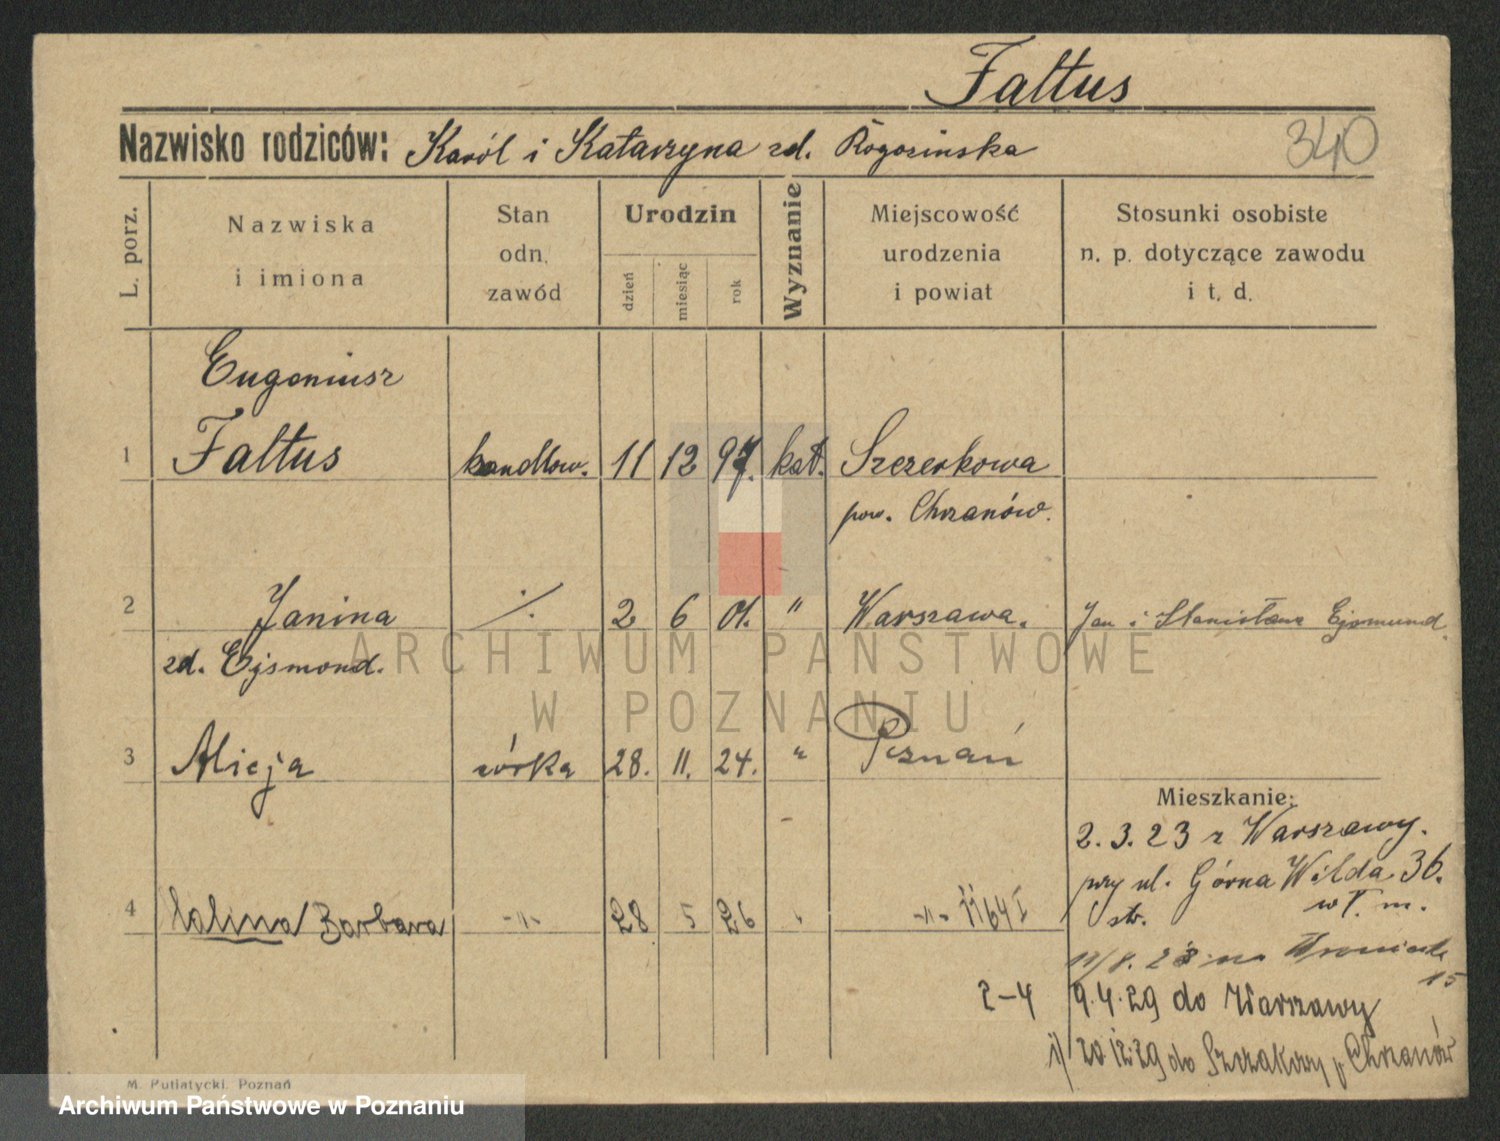 Faltus
Nazwisko rodziców: Karól i Katarzyna zd. Rogozinska
340
L. porz.
Nazwiska
i imiona
Stan
odn.
zawód
Urodzin
dzień
miesiąc
rok
Wyznanie
Miejscowość
urodzenia
i powiat
Stosunki osobiste
n. p. dotyczące zawodu
i t. d.
Eugeniusz
1 Faltus handlow. 11 12 97. kat. Szczerkowa
pow. Chrzanów.
2 Janina ./. 2 6 01. " Warszawa. Jan i Stanisława Ejsmund.
zd. Ejsmond.
ARCHIWUM PAŃSTWOWE
W POZNANIU
3 Alicja córka 28. 11. 24. " Poznań
Mieszkanie:
2.3.23 z Warszawy.
przy ul. Górna Wilda 36.
str. w T. m.
4 Halina Barbara -"- 28 5 26 -"- 1164 I
15
2-4 9.4.29 do Warszawy
1) 20 12.29 do Szczakowy p. Chrzanów
M. Putiatycki, Poznań
Archiwum Państwowe w Poznaniu